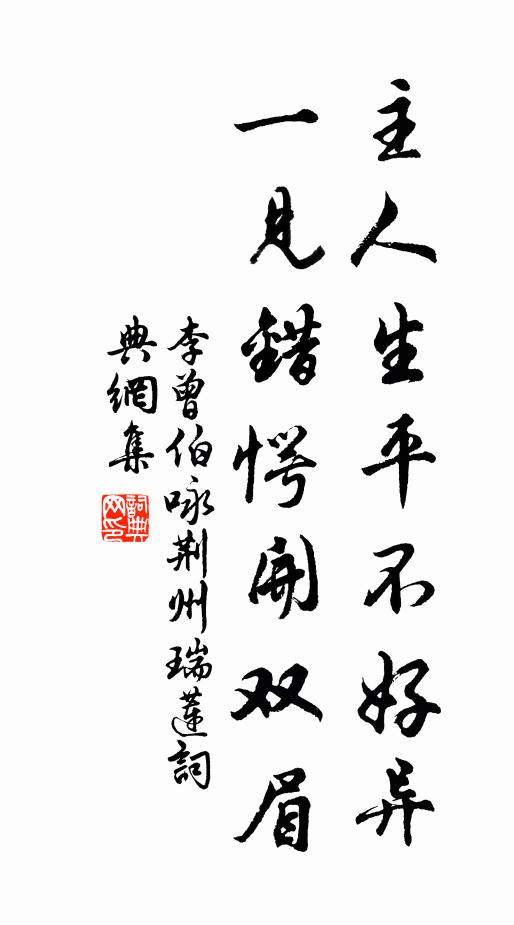 主人生平不好异
一见錯愕開双眉
李曾伯咏荆州瑞蓮詞
典網集
詞典网印